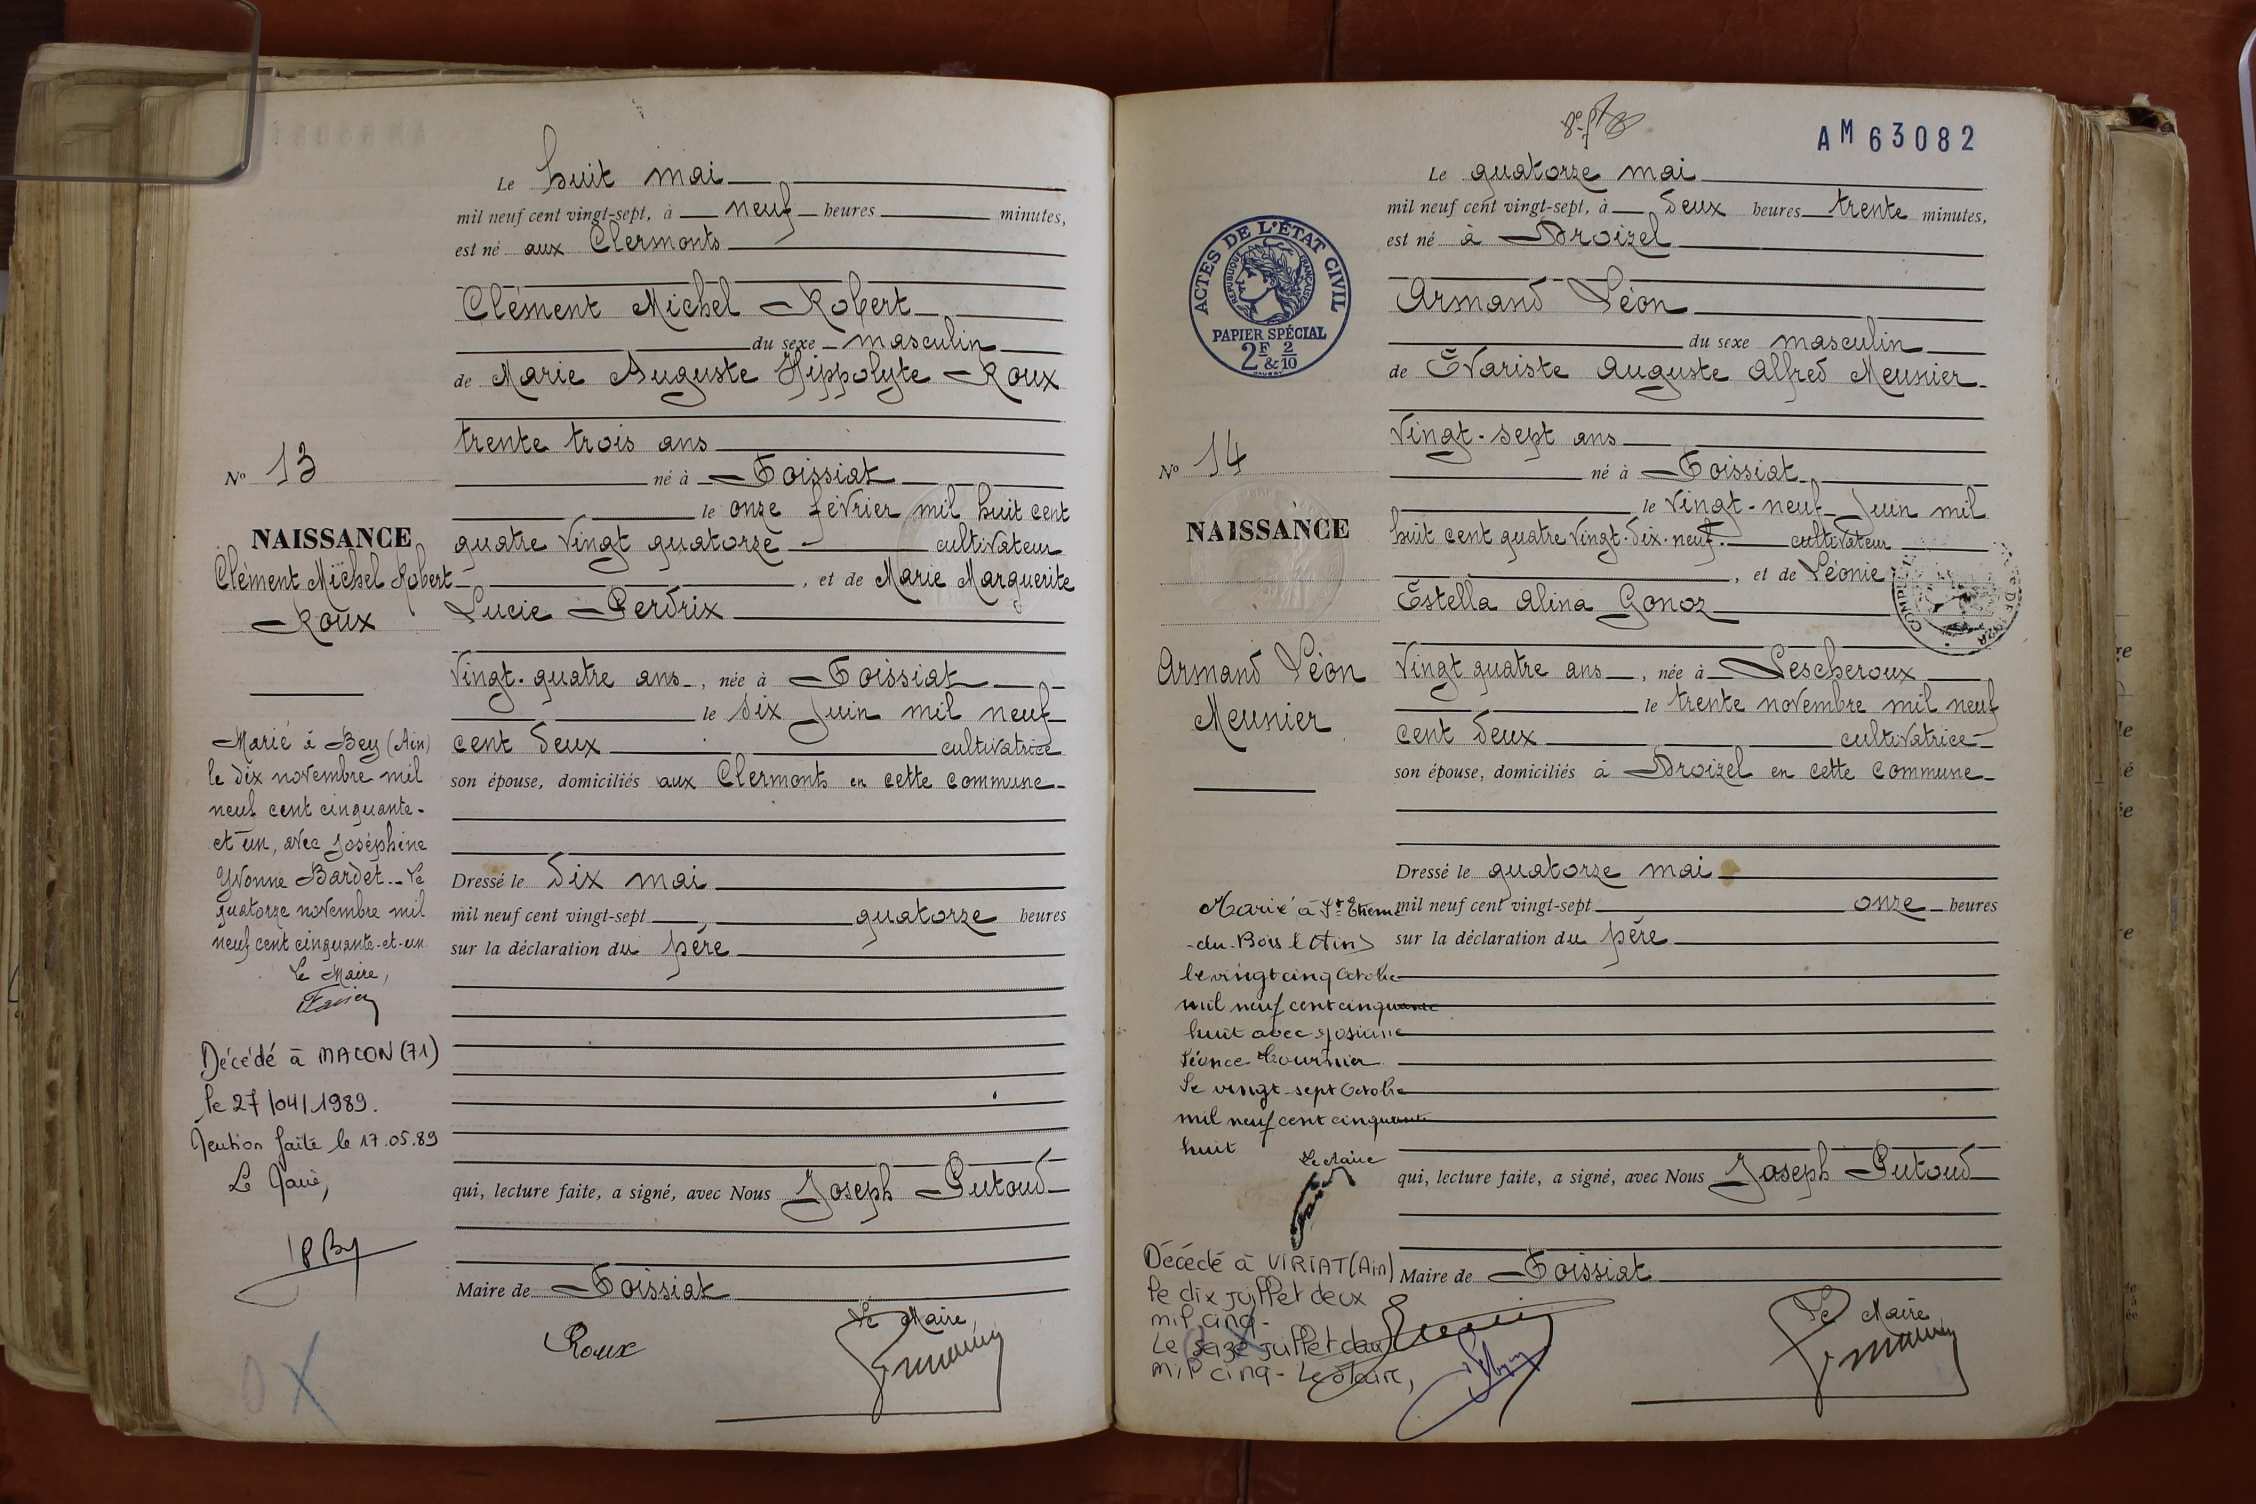 Le huit mai
mil neuf cent vingt-sept, à neuf heures minutes,
est né aux Clermonts
Clément Michel Robert
du sexe masculin
de Marie Auguste Hippolyte Roux
trente trois ans
né à Foissiat
le onze février mil huit cent
quatre vingt quatorze cultivateur
, et de Marie Marguerite
Lucie Perdrix
Vingt-quatre ans, née à Foissiat
le six Juin mil neuf
cent deux cultivatrice
son épouse, domiciliés aux Clermonts en cette commune
Dressé le dix mai
mil neuf cent vingt-sept quatorze heures
sur la déclaration du père
qui, lecture faite, a signé, avec Nous Joseph Putoud
Maire de Foissiat
Le Maire,
Roux
N° 13
NAISSANCE
Clément Michel Robert
Roux
Marié à Bey (Ain)
le dix novembre mil
neuf cent cinquante-
et un, avec Joséphine
Yvonne Bardet. Le
quatorze novembre mil
neuf cent cinquante-et-un
Le Maire,
Décédé à MACON (71)
le 27/04/1989.
Mention faite le 17.05.89
Le Maire,
AM 63082
ACTES DE L'ÉTAT CIVIL
RÉPUBLIQUE FRANÇAISE
PAPIER SPÉCIAL
2F & 2/10
Le quatorze mai
mil neuf cent vingt-sept, à deux heures trente minutes,
est né à Droizel
Armand Léon
du sexe masculin
de Evariste Auguste Alfred Meunier
Vingt-sept ans
né à Foissiat
le vingt-neuf Juin mil
huit cent quatre vingt-dix-neuf cultivateur
, et de Léonie
Estella Alina Gonoz
Vingt quatre ans, née à Lescheroux
le trente novembre mil neuf
cent deux cultivatrice
son épouse, domiciliés à Droizel en cette commune
Dressé le quatorze mai
mil neuf cent vingt-sept onze heures
sur la déclaration du père
qui, lecture faite, a signé, avec Nous Joseph Putoud
Maire de Foissiat
Le Maire
N° 14
NAISSANCE
Armand Léon
Meunier
Marié à St Etienne
-du-Bois (Ain)
le vingt cinq Octobre
mil neuf cent cinquante
huit avec Josiane
Léonce
Le vingt-sept Octobre
mil neuf cent cinquante
huit
Le Maire
Décédé à VIRIAT (Ain)
le dix juillet deux
mil cinq-
Le seize juillet deux
mil cinq- Le Maire,